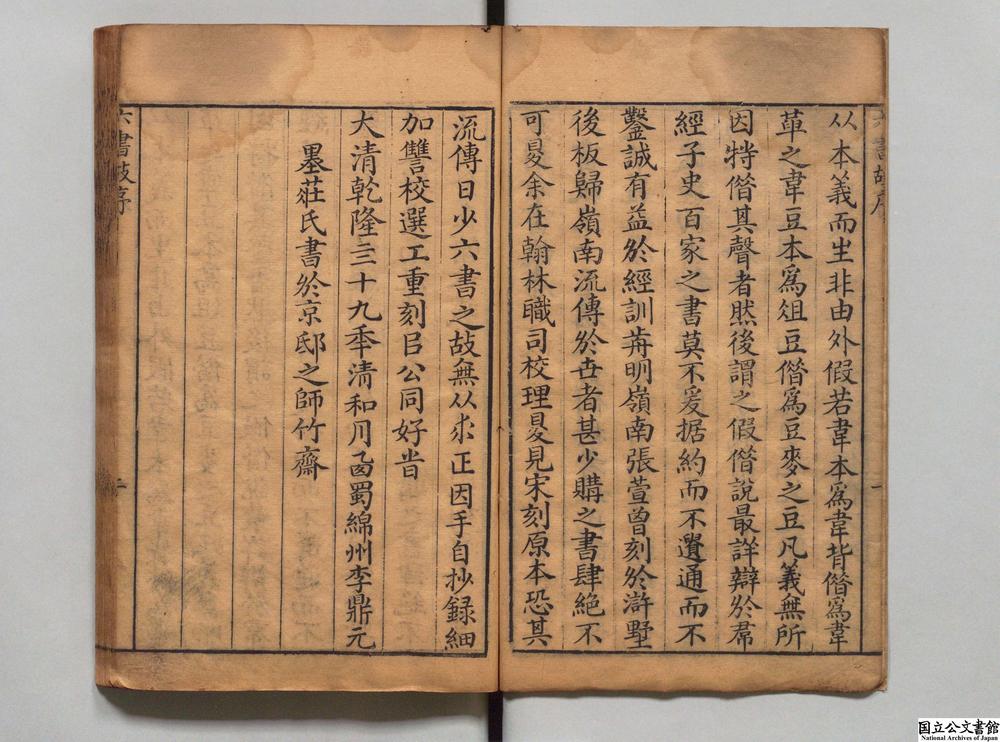 六書故序
一
从本義而生非由外假若韋本爲韋背偺爲韋
革之韋豆本爲俎豆偺爲豆麥之豆凡義無所
因特偺其聲者然後謂之假偺說最詳辯於羣
經子史百家之書莫不爰据約而不遺通而不
鑿誠有益於經訓歬明嶺南張萱曾刻於滸墅
後板歸嶺南流傳於世者甚少購之書肆絕不
可㝵余在翰林職司校理㝵見宋刻原本恐其
流傳日少六書之故無从求正因手自抄録細
加讐校選工重刻㠯公同好旹
大清乾隆三十九秊清和月西蜀綿州李鼎元
墨莊氏書於京邸之師竹齋
六書故序
二
国立公文書館
National Archives of Japan